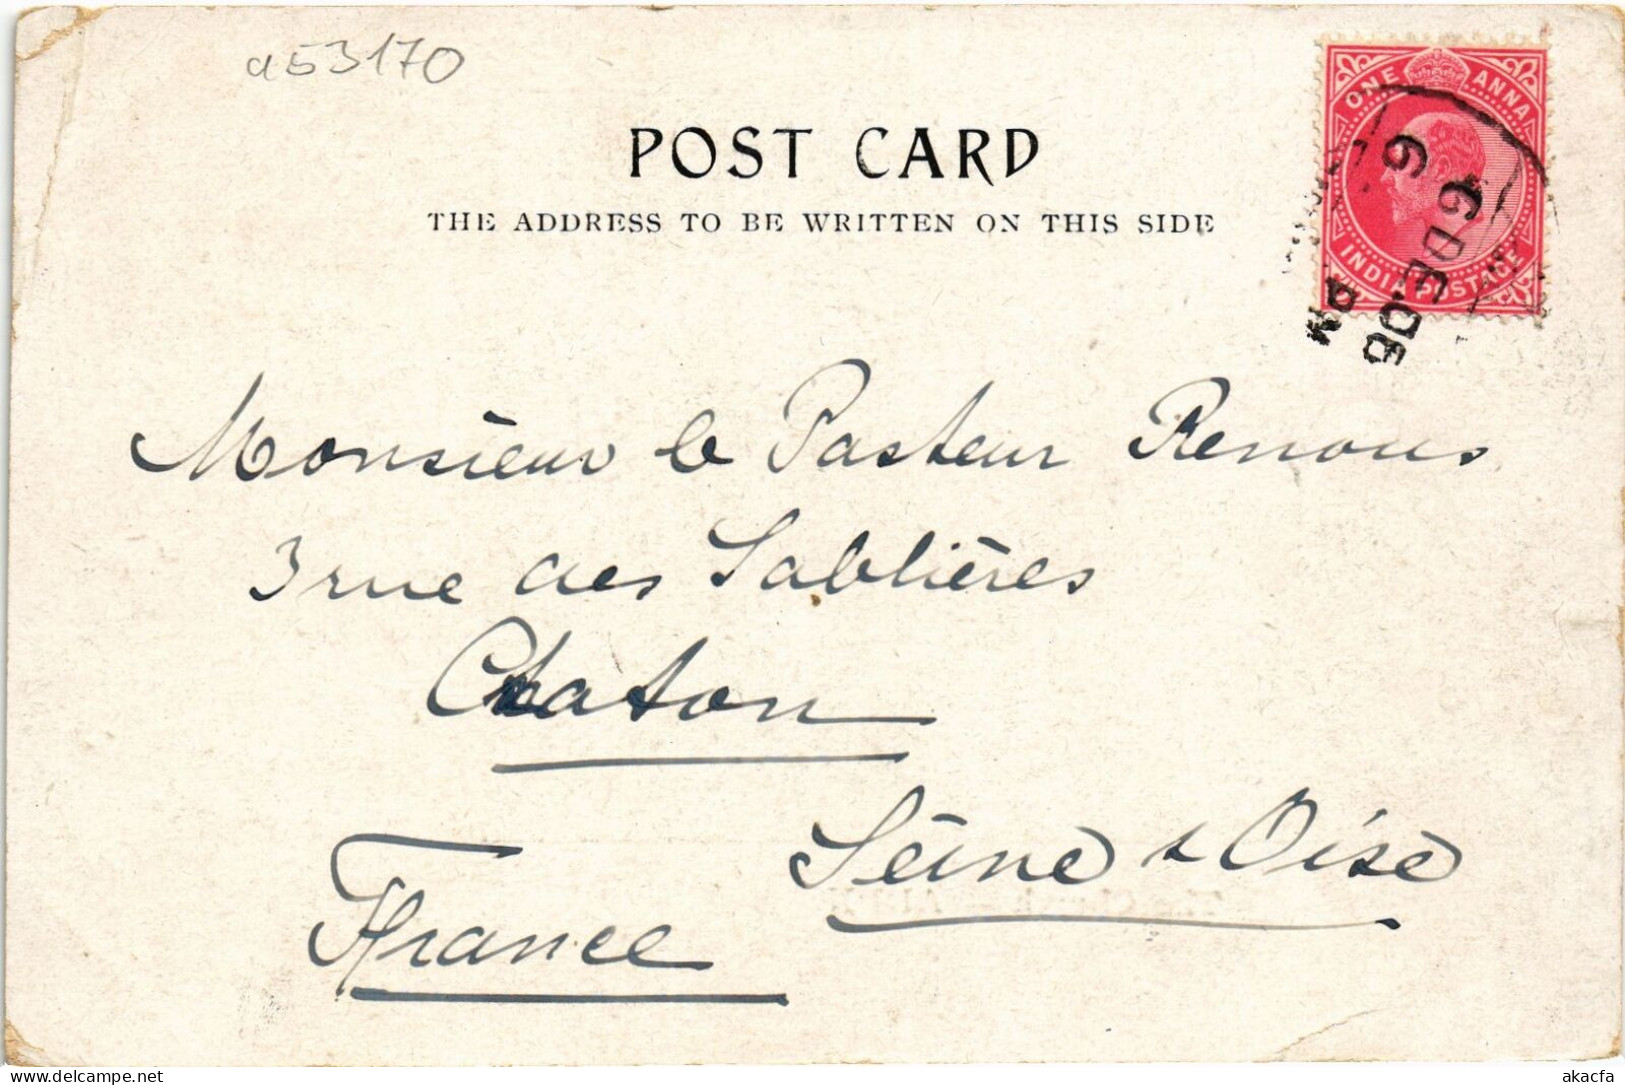 a53170
POST CARD
THE ADDRESS TO BE WRITTEN ON THIS SIDE
ONE ANNA
INDIA POSTAGE
6
9 DE.06
PM
Monsieur le Pasteur Renous
3 rue des Sablières
Chatou
Seine & Oise
France
akacfa